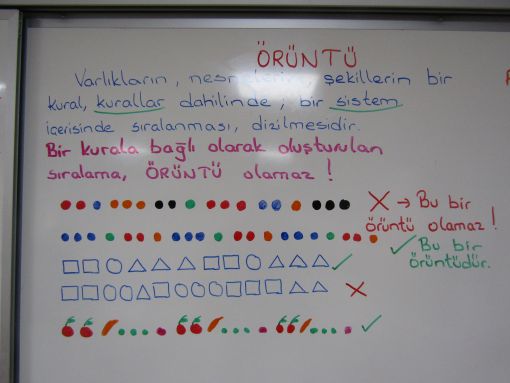 ÖRÜNTÜ
Varlıkların, şekillerin bir
kural, kurallar dahilinde, bir sistem
içerisinde sıralanması, dizilmesidir.
Bir kurala bağlı olarak oluşturulan
sıralama, ÖRÜNTÜ olamaz!
X → Bu bir
örüntü olamaz!
✓ Bu bir
örüntüdür.